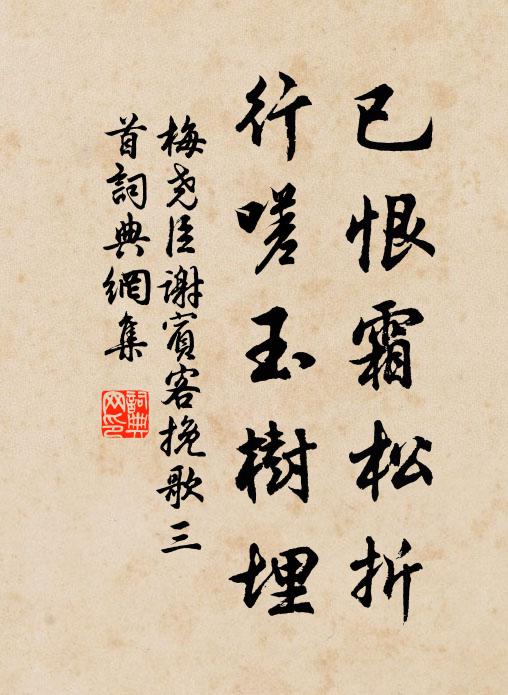 已恨霜松折
行嗟玉樹埋
梅堯臣謝賓客挽歌三
首詞典網集
詞典
网印